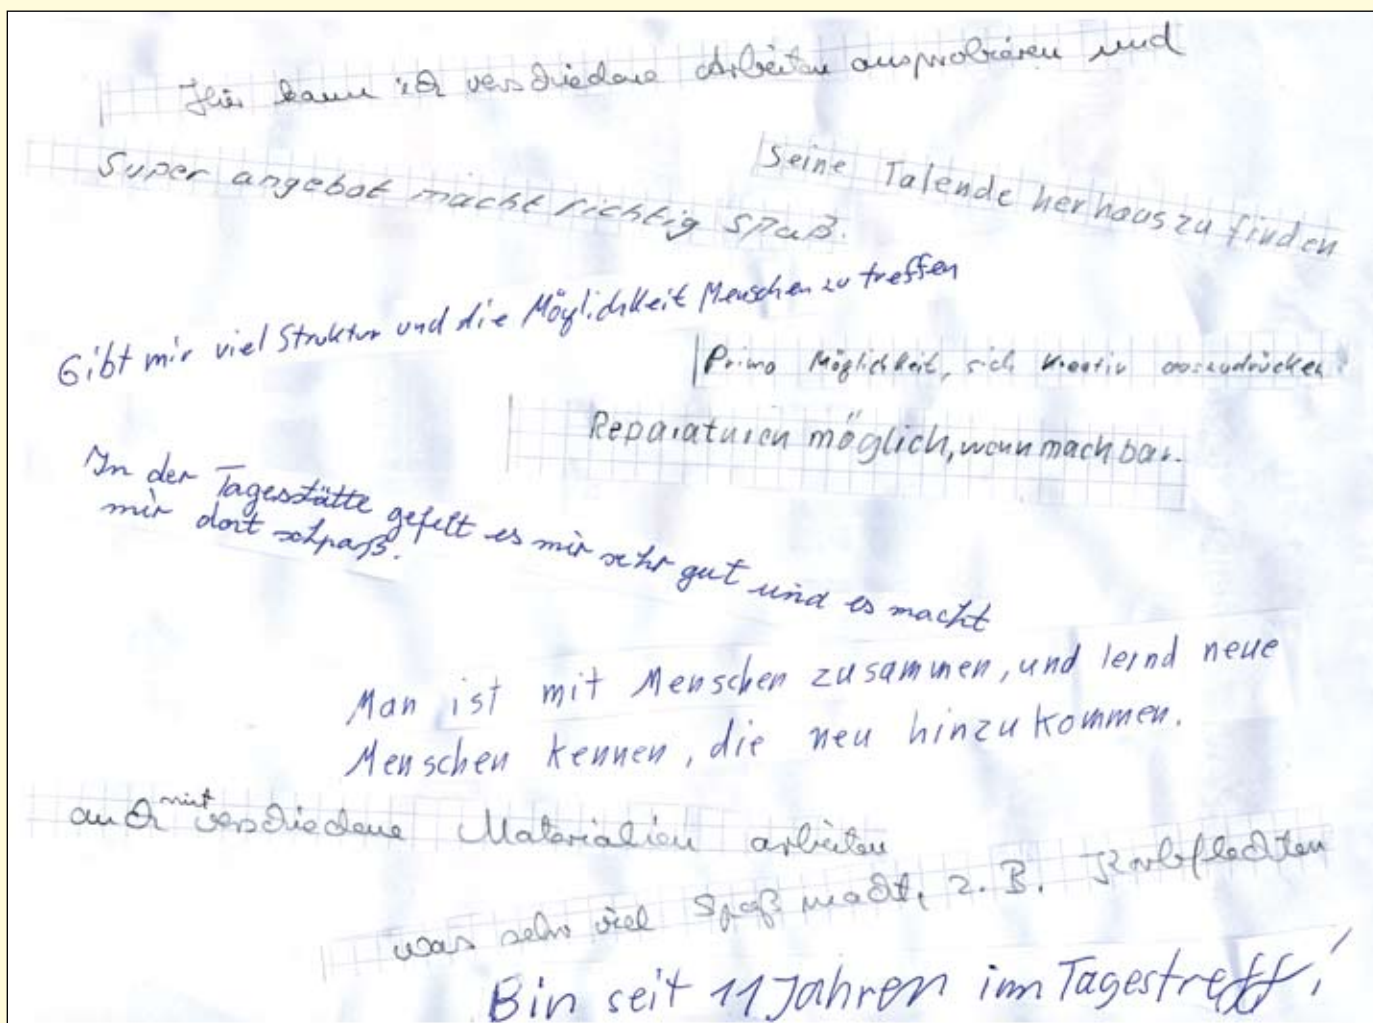 Hier kann ich verschiedene Arbeiten ausprobieren und
Super angebot macht richtig Spaß.
Seine Talende herhaus zu finden
Gibt mir viel Struktur und die Möglichkeit Menschen zu treffen
Prima Möglichkeit, sich kreativ auszudrücken
Reparaturen möglich, wenn machbar.
In der Tagesstätte gefelt es mir sehr gut und es macht
mir dort schpaß.
Man ist mit Menschen zusammen, und lernd neue
Menschen kennen, die neu hinzu kommen.
auch mit verschiedene Materialien arbeiten
was sehr viel Spaß macht, z. B. Korbflechten
Bin seit 11 Jahren im Tagestreff!